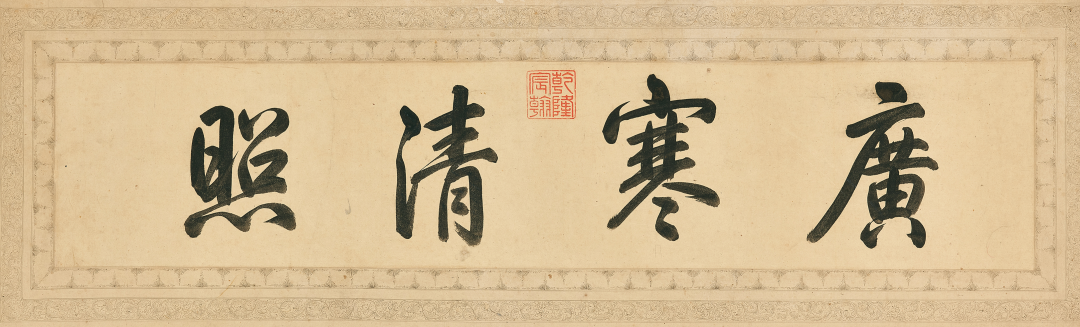 廣寒清照
乾隆宸翰